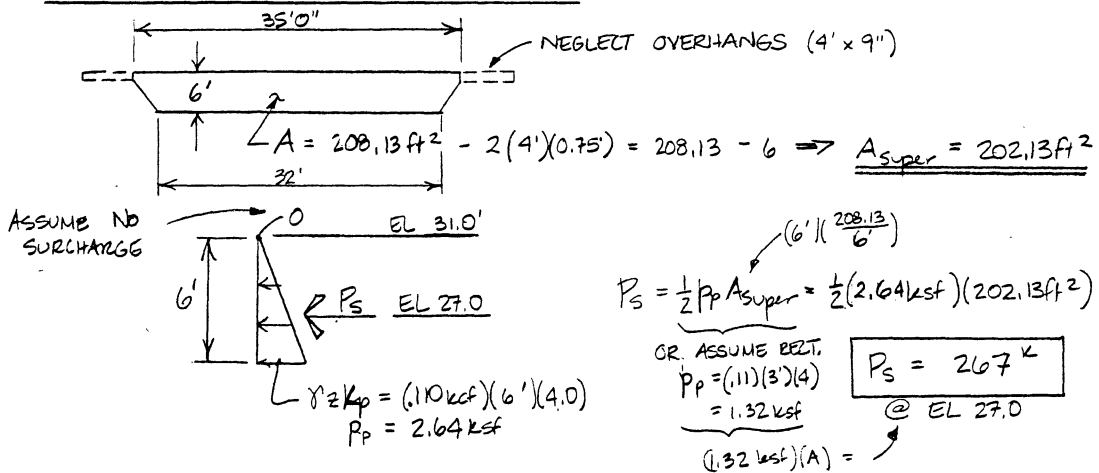 35'0"
NEGLECT OVERHANGS (4' x 9")
6'
A = 208.13 ft² - 2(4')(0.75') = 208.13 - 6 => A super = 202.13 ft²
32'
ASSUME NO
SURCHARGE
0
EL 31.0'
6'
Ps EL 27.0
γzKp = (.110 kcf)(6')(4.0)
Pp = 2.64 ksf
(6')(208.13/6')
Ps = 1/2 Pp A super = 1/2 (2.64 ksf)(202.13 ft²)
OR ASSUME RECT.
Pp = (.11)(3')(4)
= 1.32 ksf
(1.32 ksf)(A) =
Ps = 267 k
@ EL 27.0